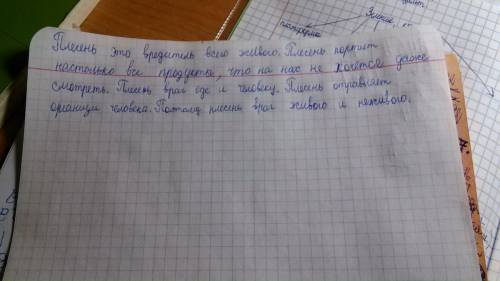 Плесень это вредитель всего живого. Плесень портит
настолько все продукты, что на нас не хочется даже
смотреть. Плесень враг еде и человеку. Плесень отравляет
организм человека. Поэтому плесень враг живого и неживого.